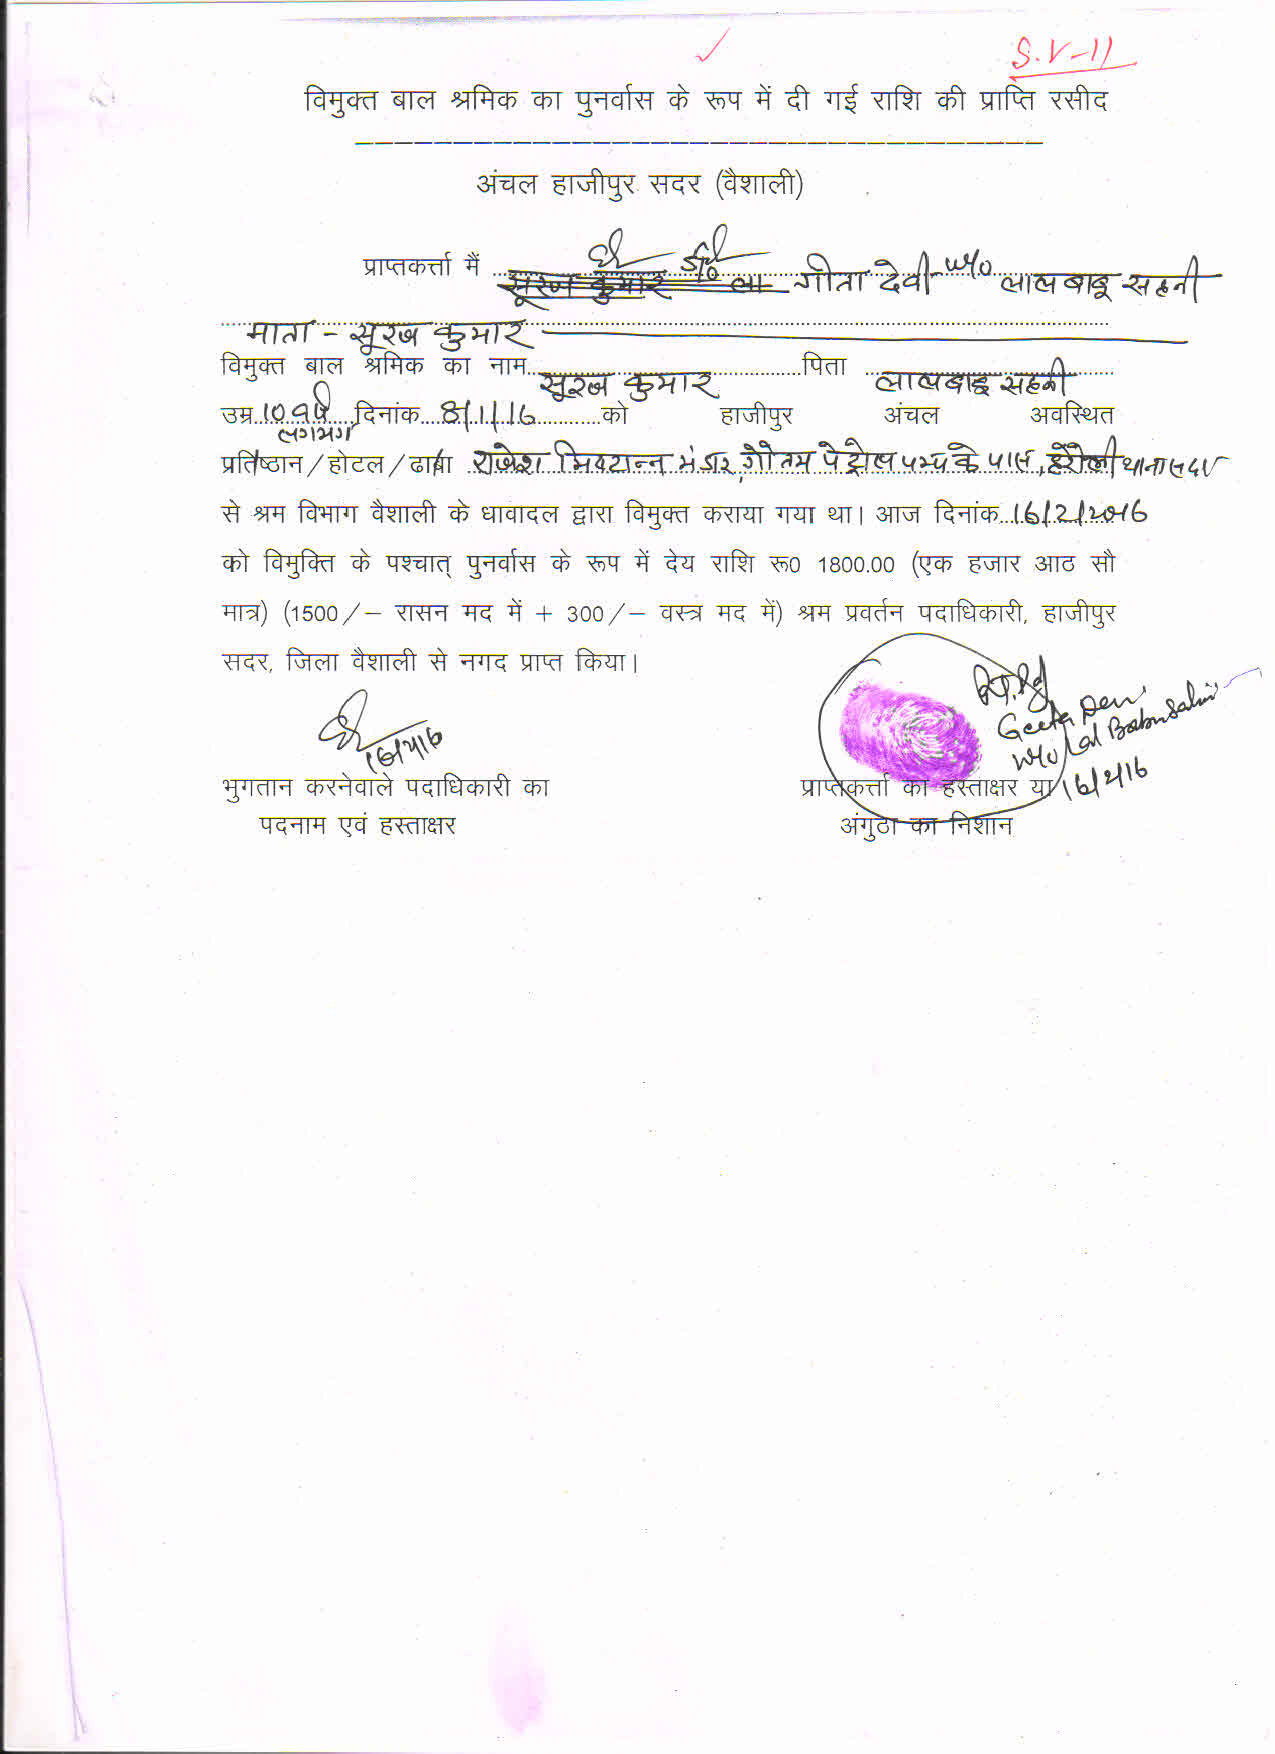 S.V-11
विमुक्त बाल श्रमिक का पुनर्वास के रूप में दी गई राशि की प्राप्ति रसीद
अंचल हाजीपुर सदर (वैशाली)
प्राप्तकर्त्ता मैं सूरज कुमार S/o ला गीता देवी W/o लालबाबू सहनी
माता - सूरज कुमार
विमुक्त बाल श्रमिक का नाम सूरज कुमार पिता लालबाबू सहनी
उम्र 10 वर्ष दिनांक 8/1/16 को हाजीपुर अंचल अवस्थित
लगभग
प्रतिष्ठान/होटल/ढाबा राजेश मिष्टान्न भंडार, गौतम पेट्रोल पम्प के पास, थाना सदर
से श्रम विभाग वैशाली के धावादल द्वारा विमुक्त कराया गया था। आज दिनांक 16/2/2016
को विमुक्ति के पश्चात् पुनर्वास के रूप में देय राशि रू0 1800.00 (एक हजार आठ सौ
मात्र) (1500/- रासन मद में + 300/- वस्त्र मद में) श्रम प्रवर्तन पदाधिकारी, हाजीपुर
सदर, जिला वैशाली से नगद प्राप्त किया।
Geeta Devi
W/o Lal Babu Sahni
16/2/16
16/2/16
भुगतान करनेवाले पदाधिकारी का प्राप्तकर्त्ता का हस्ताक्षर या
पदनाम एवं हस्ताक्षर अंगुठा का निशान